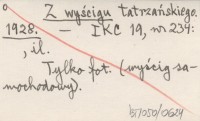 Z wyścigu tatrzańskiego.
1928. — IKC 19, nr 234:
, il.
Tylko fot. (wyścig sa-
mochodowy).